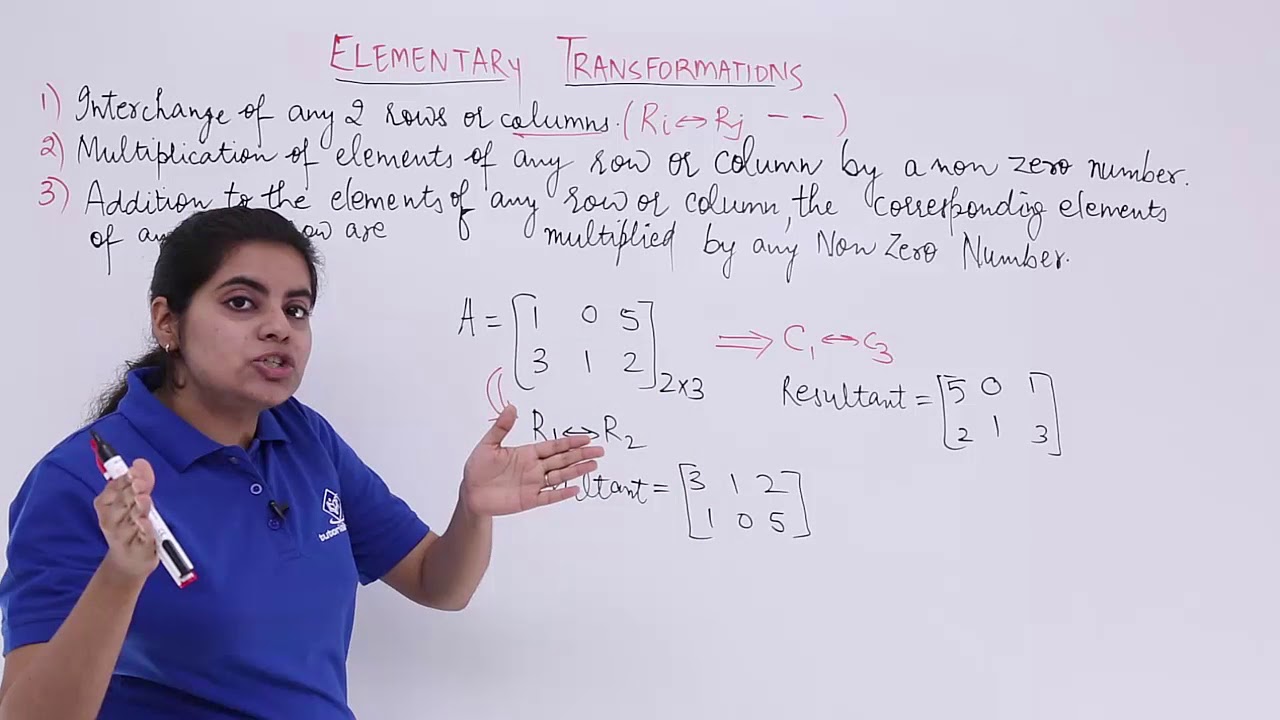 ELEMENTARY TRANSFORMATIONS
1) Interchange of any 2 rows or columns. (Ri ↔ Rj - - )
2) Multiplication of elements of any row or column by a non zero number.
3) Addition to the elements of any row or column, the corresponding elements
of are multiplied by any Non Zero Number.
A = [1 0 5
3 1 2] 2×3
⇒ C1 ↔ C3
Resultant = [5 0 1
2 1 3]
R1 ↔ R2
= [3 1 2
1 0 5]